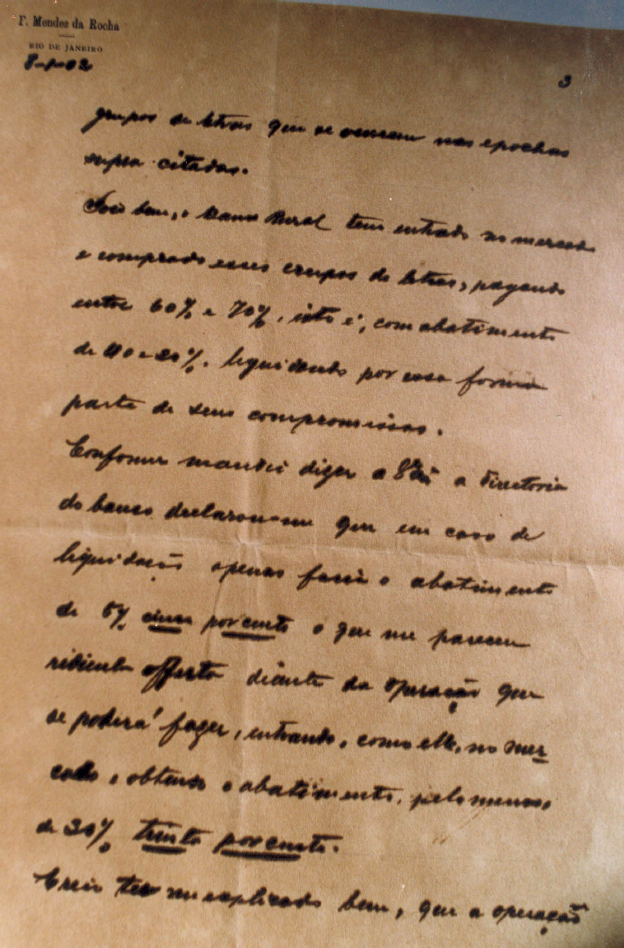 F. Mendes da Rocha
RIO DE JANEIRO
3
grupos de letras que se vencem nas epochas
supra citadas.
Pois bem, o Banco Rural tem entrado no mercado
e comprado esses grupos de letras, pagando
entre 60% e 70%, isto é, com abatimento
de 40 e 30%, liquidando por essa forma
parte de seus compromissos.
Conforme mandei dizer a a directoria
do banco declarou-me que em caso de
liquidação apenas fazia o abatimento
de 5% cinco por cento o que me pareceu
ridicula offerta diante da operação que
se poderá fazer, entrando, como elle, no mer
cado, e obtendo o abatimento, pelo menos,
de 30% trinta por cento.
Creio ter me explicado bem, que a operação